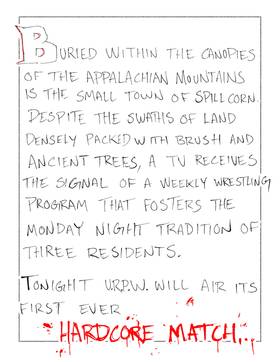 BURIED WITHIN THE CANOPIES
OF THE APPALACHIAN MOUNTAINS
IS THE SMALL TOWN OF SPILLCORN.
DESPITE THE SWATHS OF LAND
DENSELY PACKED WITH BRUSH AND
ANCIENT TREES, A TV RECEIVES
THE SIGNAL OF A WEEKLY WRESTLING
PROGRAM THAT FOSTERS THE
MONDAY NIGHT TRADITION OF
THREE RESIDENTS.
TONIGHT U.R.P.W. WILL AIR ITS
FIRST EVER
HARDCORE MATCH...